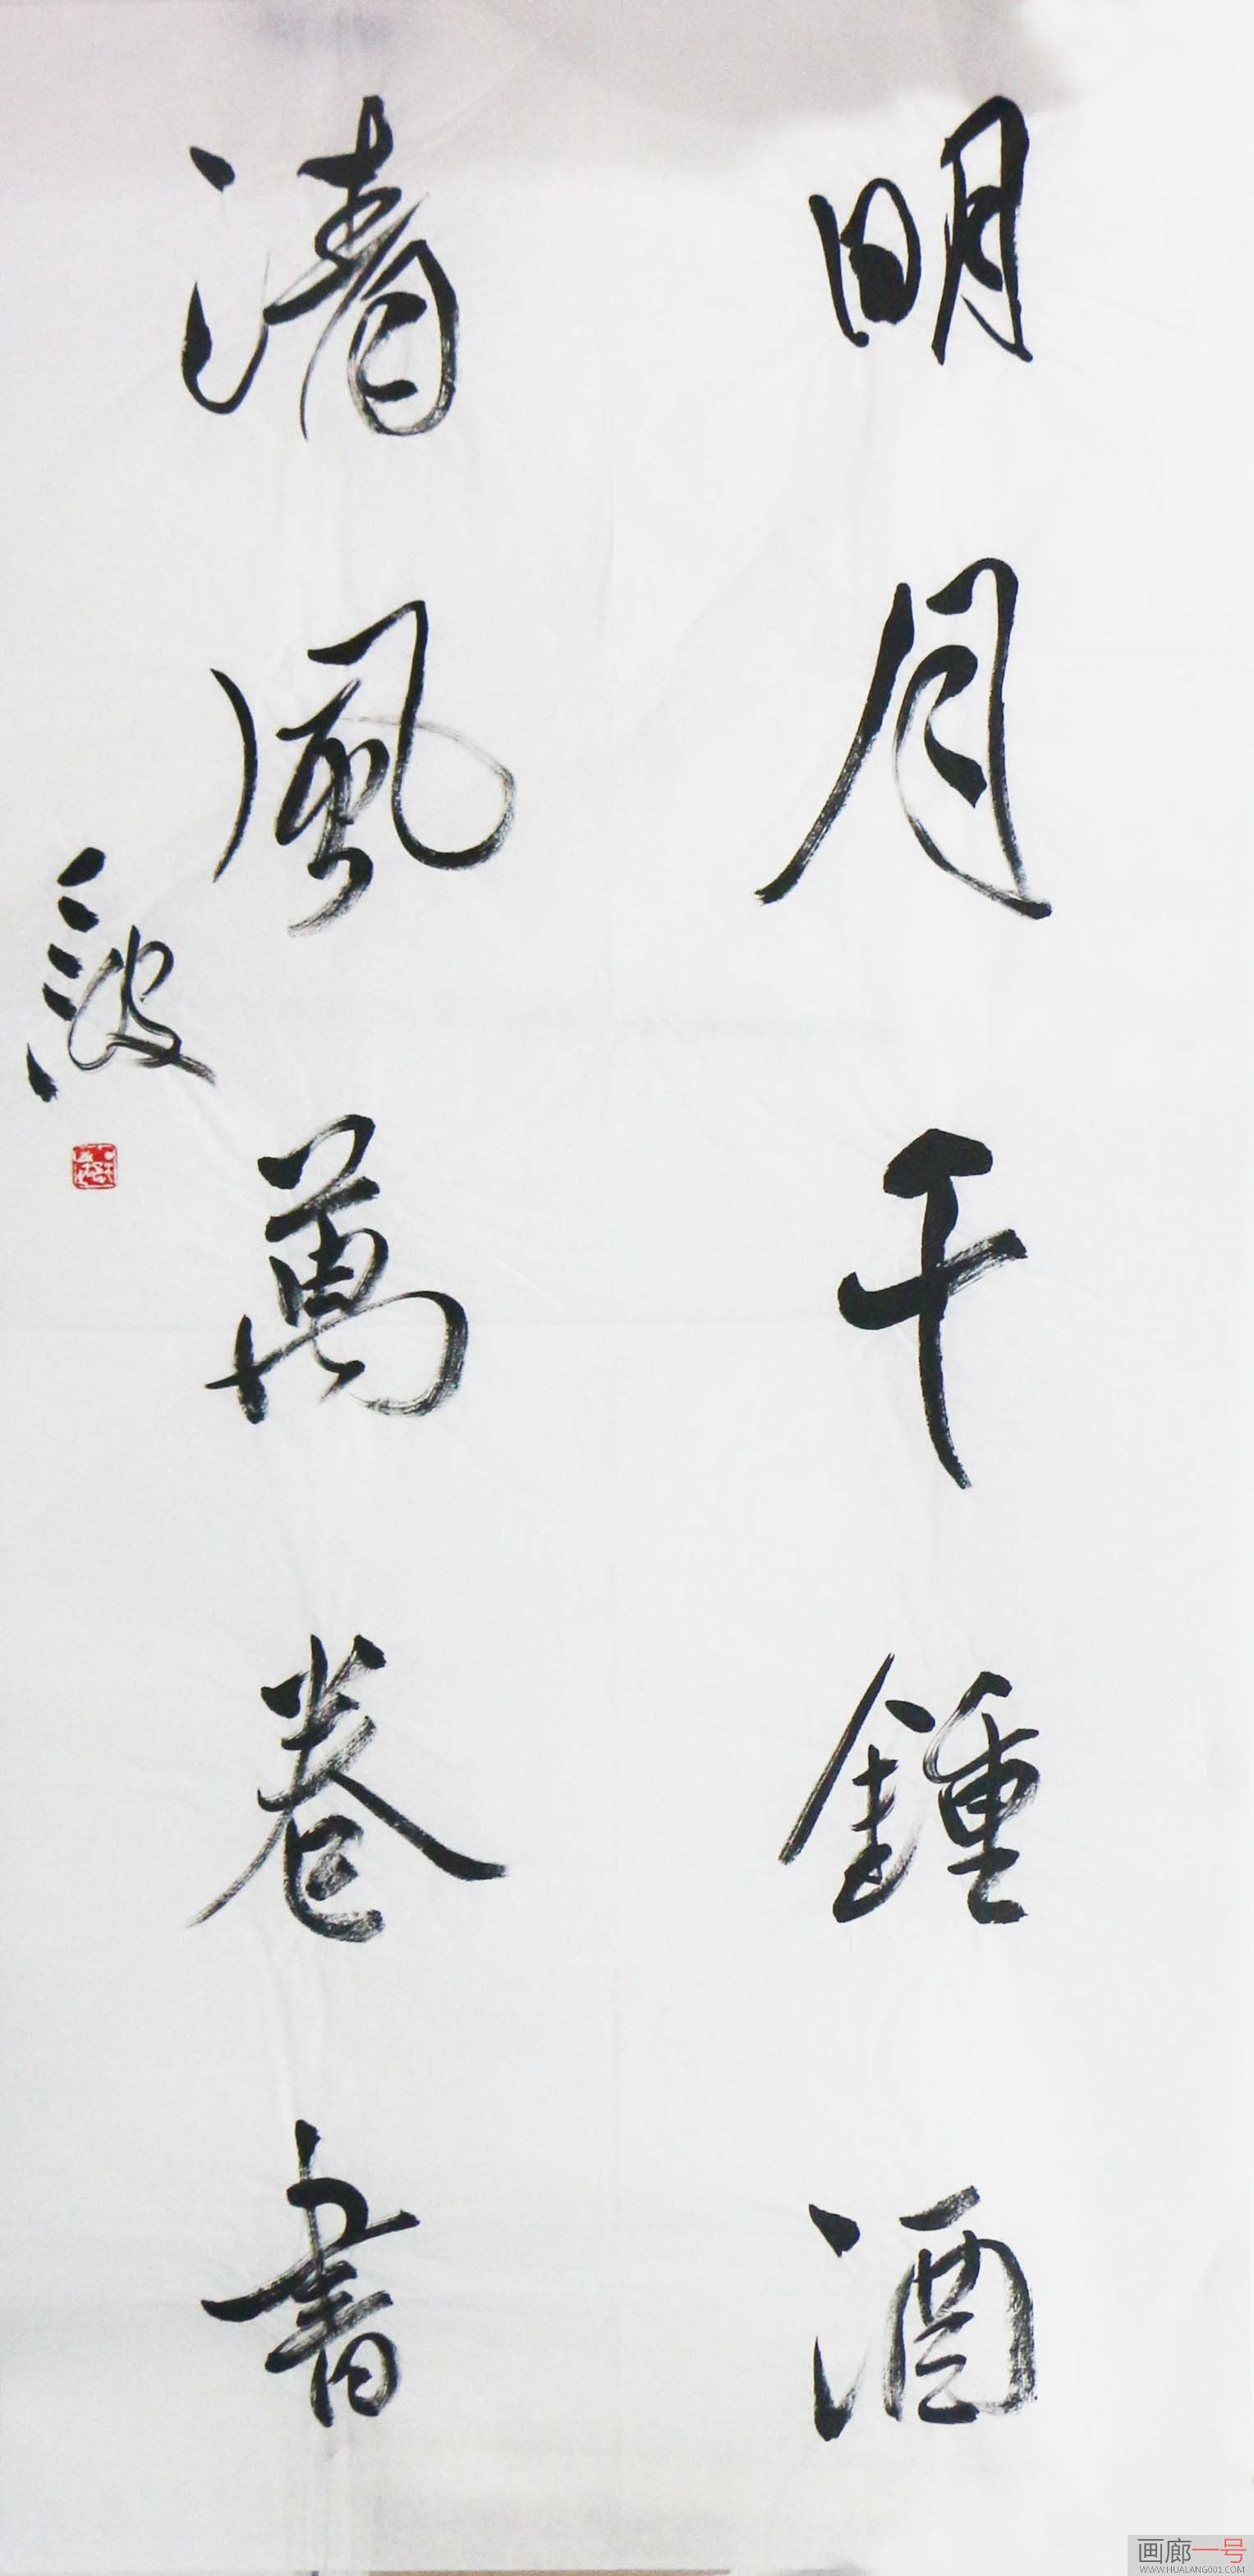 明月千鍾酒
清風萬卷書
画廊一号
WWW.HUALANG001.COM